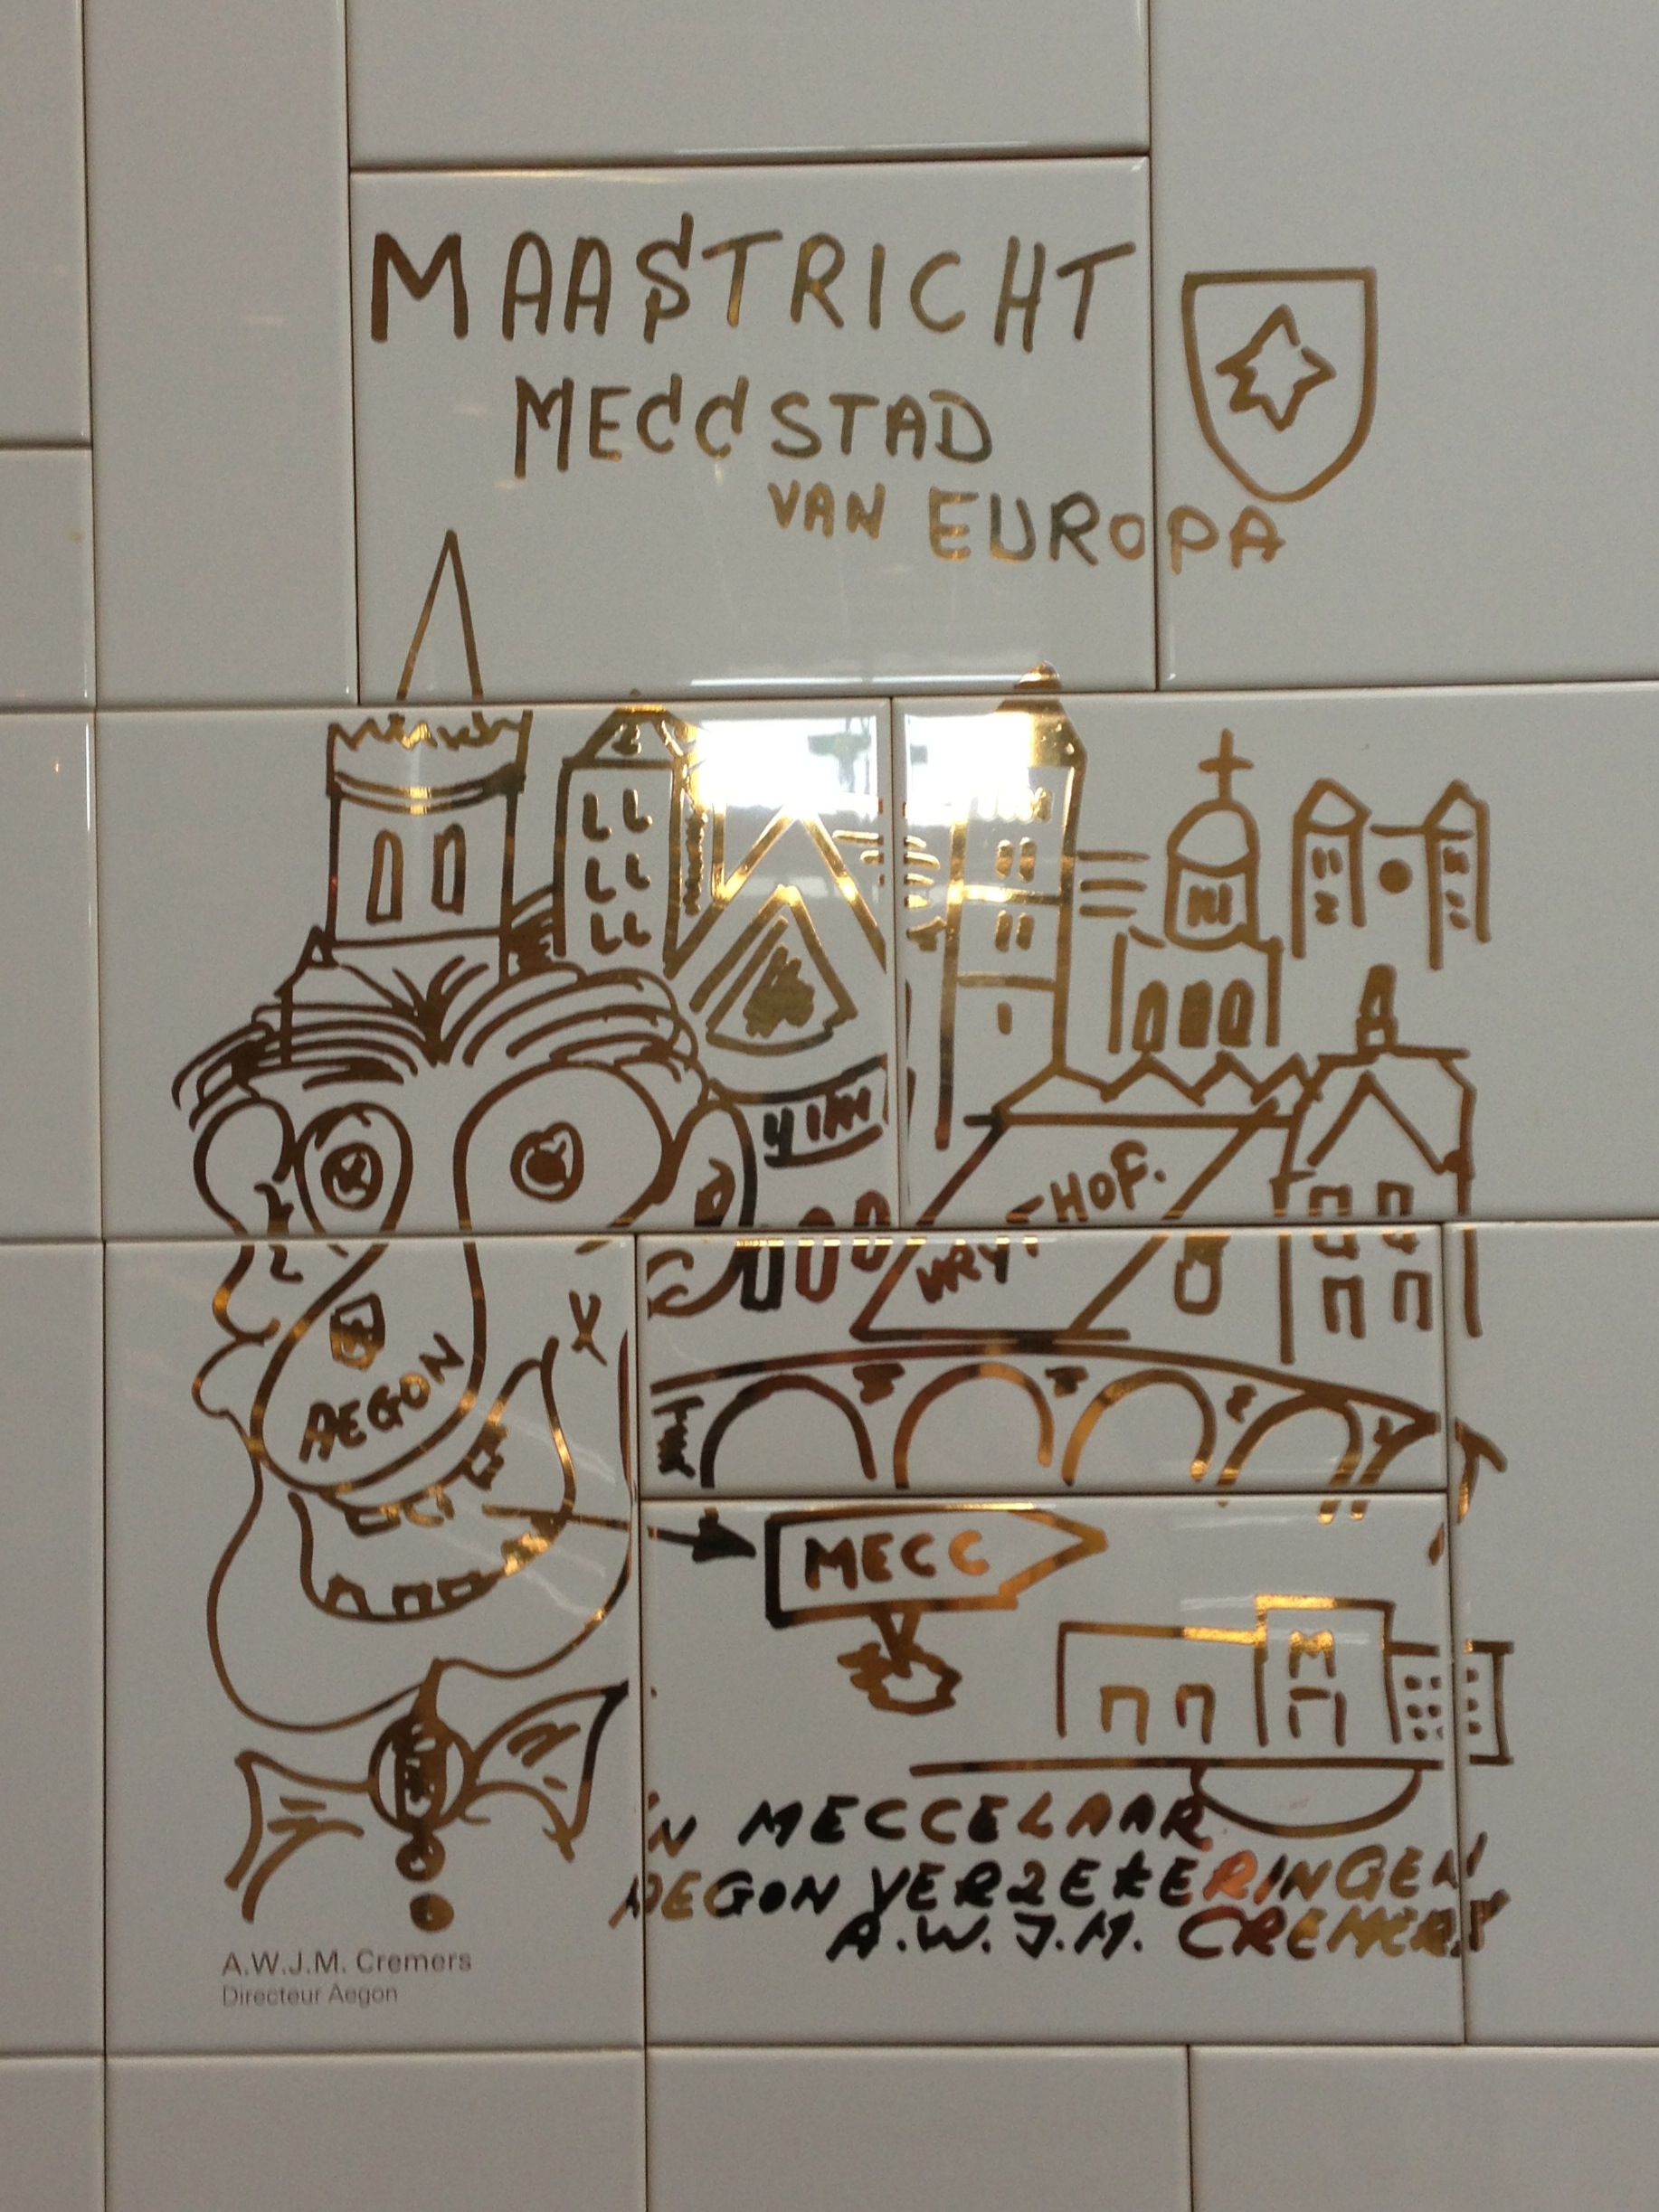 MAASTRICHT
MECCSTAD
VAN EUROPA
VRYTHOF.
AEGON
MECC
M
'N MECCELAAR
AEGON VERZEKERINGEN
A.W.J.M. CREMERS
A.W.J.M. Cremers
Directeur Aegon